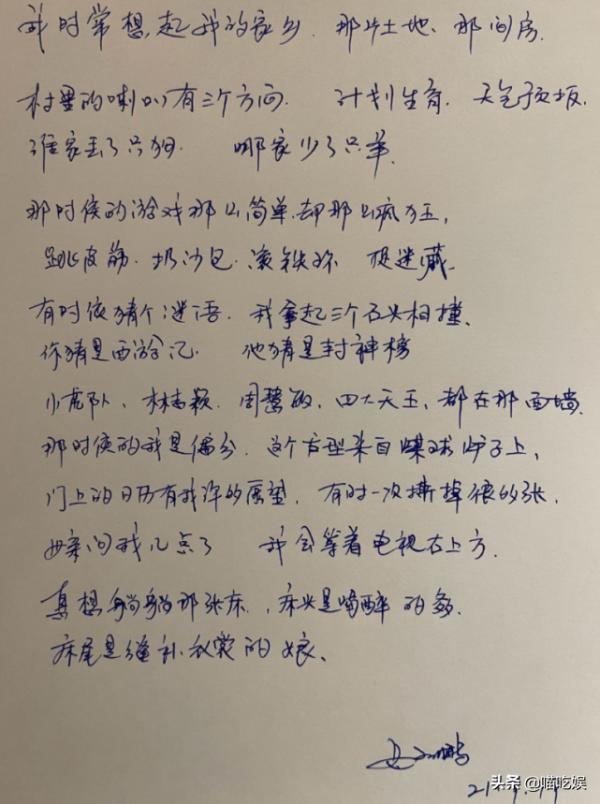 我时常想起我的家乡.那片土地、那间房.
村里的喇叭有三个方向.计划生育.天气预报.
谁家丢了只狗.哪家少了只羊.
那时候的游戏那么简单.却那么疯狂,
跳皮筋.扔沙包.滚铁环 捉迷藏.
有时候猜个谜语.我拿起三个石头相撞.
你猜是西游记.他猜是封神榜
小虎队、林志颖.周慧敏.四大天王,都在那面墙.
那时候的我是偏分.这个发型来自煤球炉子上,
门上的日历有我许的愿望.有时一次撕掉很多张,
母亲问我几点了 我会等着电视右上方.
真想躺躺那张床.床头是喝醉的爹.
床尾是缝补衣裳的娘、
21.
头条 @喵吃娱